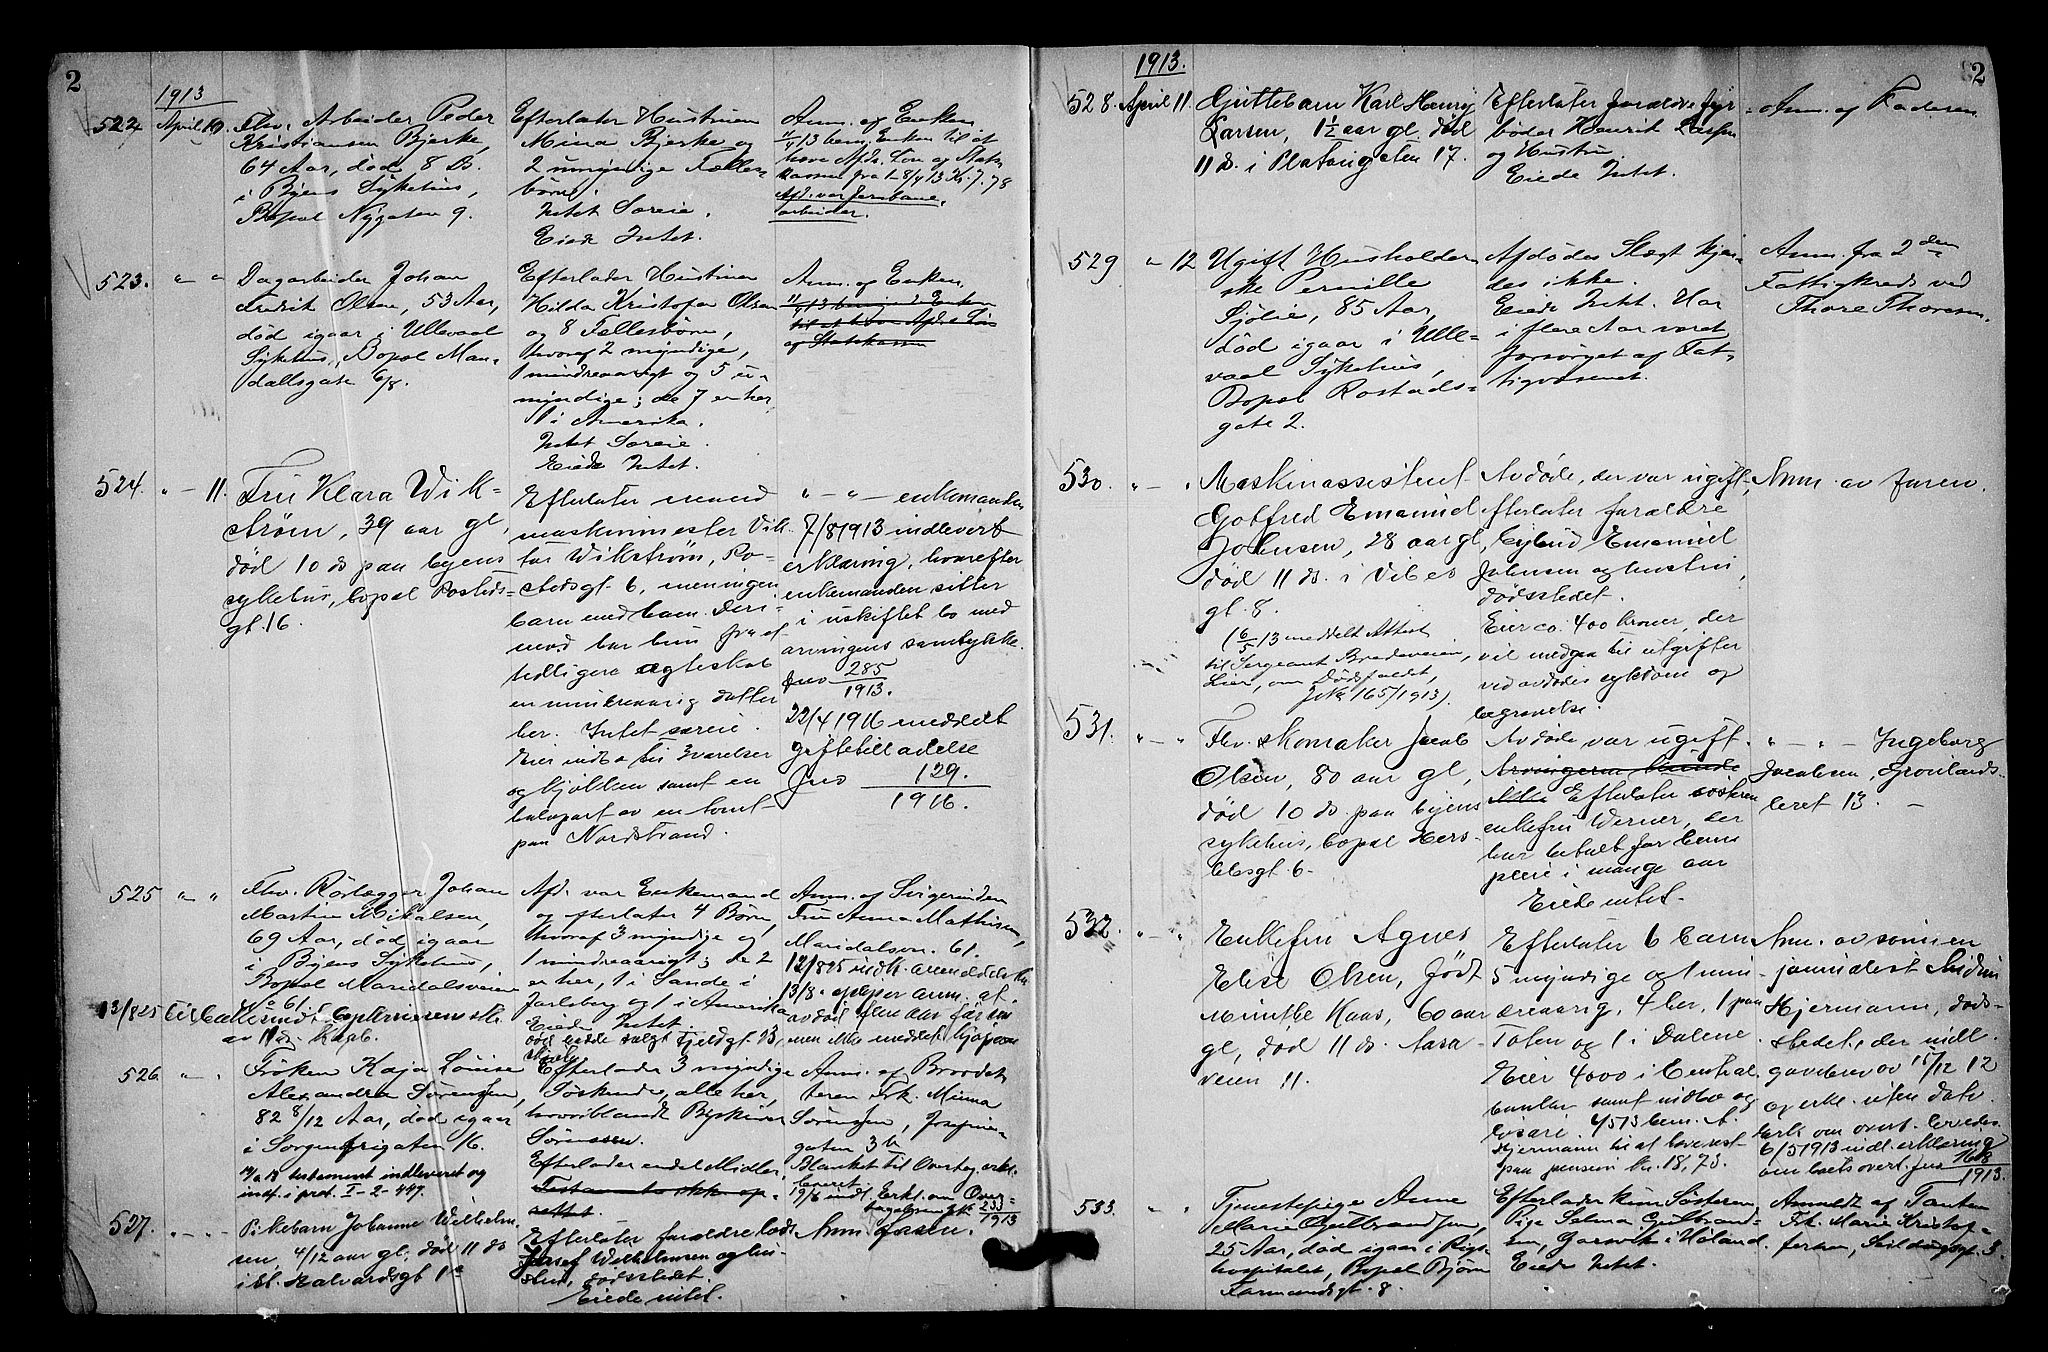 2
1913
522 April 10. Fhv. Arbeider Peder
Kristiansen Bjerke,
64 Aar, død 8 ds.
i Byens Sykehus,
Bopal Nygaten 9.
Efterlater Hustruen
Mina Bjerke og
2 umyndige Fælles-
børn.
Intet Særeie.
Eiede Intet.
Anm. af Enken
11/4 13 bem. Enken til at
hæve Afds. Løn og Stats
kassen fra 1-8/4 13 Kr. 7.78
Afd. var Jernbane-
arbeider.
523. " - " Dagarbeider Johan
Fredrik Olsen, 53 Aar,
død igaar i Ullevaal
Sykehus, Bopal Man-
dallsgate 6/8.
Efterlader Hustruen
Hilda Kristofa Olsen
og 8 Fellesbörn,
hvoraf 2 myndige,
1 mindreaarigt og 5 u-
myndige; de 7 er her
1 i Amerika.
Intet Særeie.
Eiede Intet.
Anm. af Enken.
11/4 13 bem. Enken
til at hæve Afds. Løn
og Statskassen
524. " - 11. Fru Klara Wik-
strøm, 39 aar gl,
død 10 ds paa byens
sykehus, bopal Rosteds-
gt. 16.
Efterlater mand
maskinmester Vik-
tor Wikstrøm, Ro-
stedsgt. 6, men ingen
barn med ham. Deri-
mod har hun fra et
tidligere ægteskab
en mindreaarig datter
her. Intet særeie.
Eier indbo til 3 værelser
og kjøkken samt en
halvpart av en tomt
paa Nordstrand.
" - " - enkemanden
7/8 1913 indlevert
erklæring, hvorefter
enkemanden sitter
i uskiftet bo med
arvingens samtykke.
Jno 285
1913.
22/4 1916 meddelt
giftetilladelse
Jno 129.
1916.
525 " - " Fhv. Rörlægger Johan
Martin Mikalsen,
69 Aar, død igaar
i Byens Sykehus,
Bopal Maridalsveien
61.
Afd. var Enkemand
og efterlater 4 Børn,
hvoraf 3 myndige og
1 mindreaarigt; de 2
er her, 1 i Sande i
Jarlsberg og 1 i Amerika
Eiede Intet.
Anm. af Svigerinden
Fru Anna Mathisen,
Maridalsvn. 61.
526 " - " Frøken Kaja Louise
Alexandra Sørensen,
82 8/12 Aar, død igaar
i Sorgenfrigaten 16.
testament indleveret og
indf. i prot. I-2-447.
Efterlader 3 myndige
Søskende, alle her,
hvoriblandt Byskriver
Sørenssen.
Efterlader endel Midler
Testamente ikke op-
rettet.
Anm. af Broodat-
teren Frk. Minna
Sørensen, Josefine-
gaten 3 b
Blanket til Overtag. erkl.
leveret
19/6 indl. Erkl. om Over-
tagelsen Jno 233
1913
527. " - " Pikebarn Johanne Wilhelm-
sen, 4/12 aar gl. død 11 ds
i st. Halvardsgt 1a
Efterlater forældre lods
Josef Wilhelmsen og hu-
stru, dødsstedet.
Eiede intet.
Anm. faren.
2
1913.
528. April 11. Guttebarn Karl Henry
Larsen, 1½ aar gl. død
11 ds. i Platougaten 17.
Efterlater forældre fyr-
böder Henrik Larsen
og Hustru.
Eiede Intet.
Anm. af Faderen.
529 " 12 Ugift Husholder-
ske Pernille
Sjølie, 85 Aar,
død igaar i Ulle-
vaal Sykehus,
Bopal Rostads-
gate 2.
Afdødes Slægt kjen-
des ikke.
Eiede Intet. Har
i flere Aar været
forsørget af Fat-
tigvæsenet.
Anm. fra 2den
Fattigkreds ved
Thore Thoresen.
530. " - " Maskinassistent
Gotfred Emanuel
Johnsen, 28 aar gl,
død 11 ds. i Vibes
gt. 8.
(6/5 13 meddelt Attest
til Sergeant Bradeveien,
Lier, om Dödsfaldet,
Jnk 165/1913).
Avdøde, der var ugift,
efterlater forældre
bybud Emanuel
Johnsen og hustru,
dødsstedet.
Eier ca. 400 kroner, der
vil medgaa til utgifter
ved avdødes sykdom og
begravelse.
Anm. av faren.
531. " - " Fhv. skomaker Jacob
Olsen, 80 aar gl,
død 10 ds. paa byens
sykehus, bopal Hers-
lebsgt 6.
Avdøde var ugift.
Arvingerne kunde
ikke Efterlater søsteren
enkefru Werner, der
har betalt for hans
pleie i mange aar
Eiede intet.
" - " - Ingeborg
Jacobsen, Grønlands-
leret 13. -
532. " - " Enkefru Agnes
Elise Olsen, født
Minthe Kaas, 60 aar
gl, død 11 ds. Aasa-
veien 11.
Efterlater 6 barn
5 myndige og 1 min-
dreaarig, 4 her, 1 paa
Toten og 1 i Dalene.
Eier 4000 i Central-
banken samt indbo og
løsøre. 4/5 13 bem. A.
Hjermann til at hæve rest
paa pension kr. 18,73.
Anm. av sønnen
journalist
Hjermann, døds-
stedet, der indl.
gavebrev av 15/12 12
og erkl. uten dato.
Erkl. om overt. leveredes.
6/5 1913 indl. erklæring
om boets overt. Jno 168
1913.
533. " " Tjenestepige Anne
Marie Gulbrandsen,
25 Aar, død igaar i Rigs-
hospitalet, Bopal Bjørn
Farmandsgt. 8.
Efterlader kun Søsteren
Pige Selma Gulbrand-
sen, Gorsvik i Høland.
Eiede Intet.
Anmeldt af Tanten
Frk. Marie Kristof-
fersen, Seilduksgt. 3.